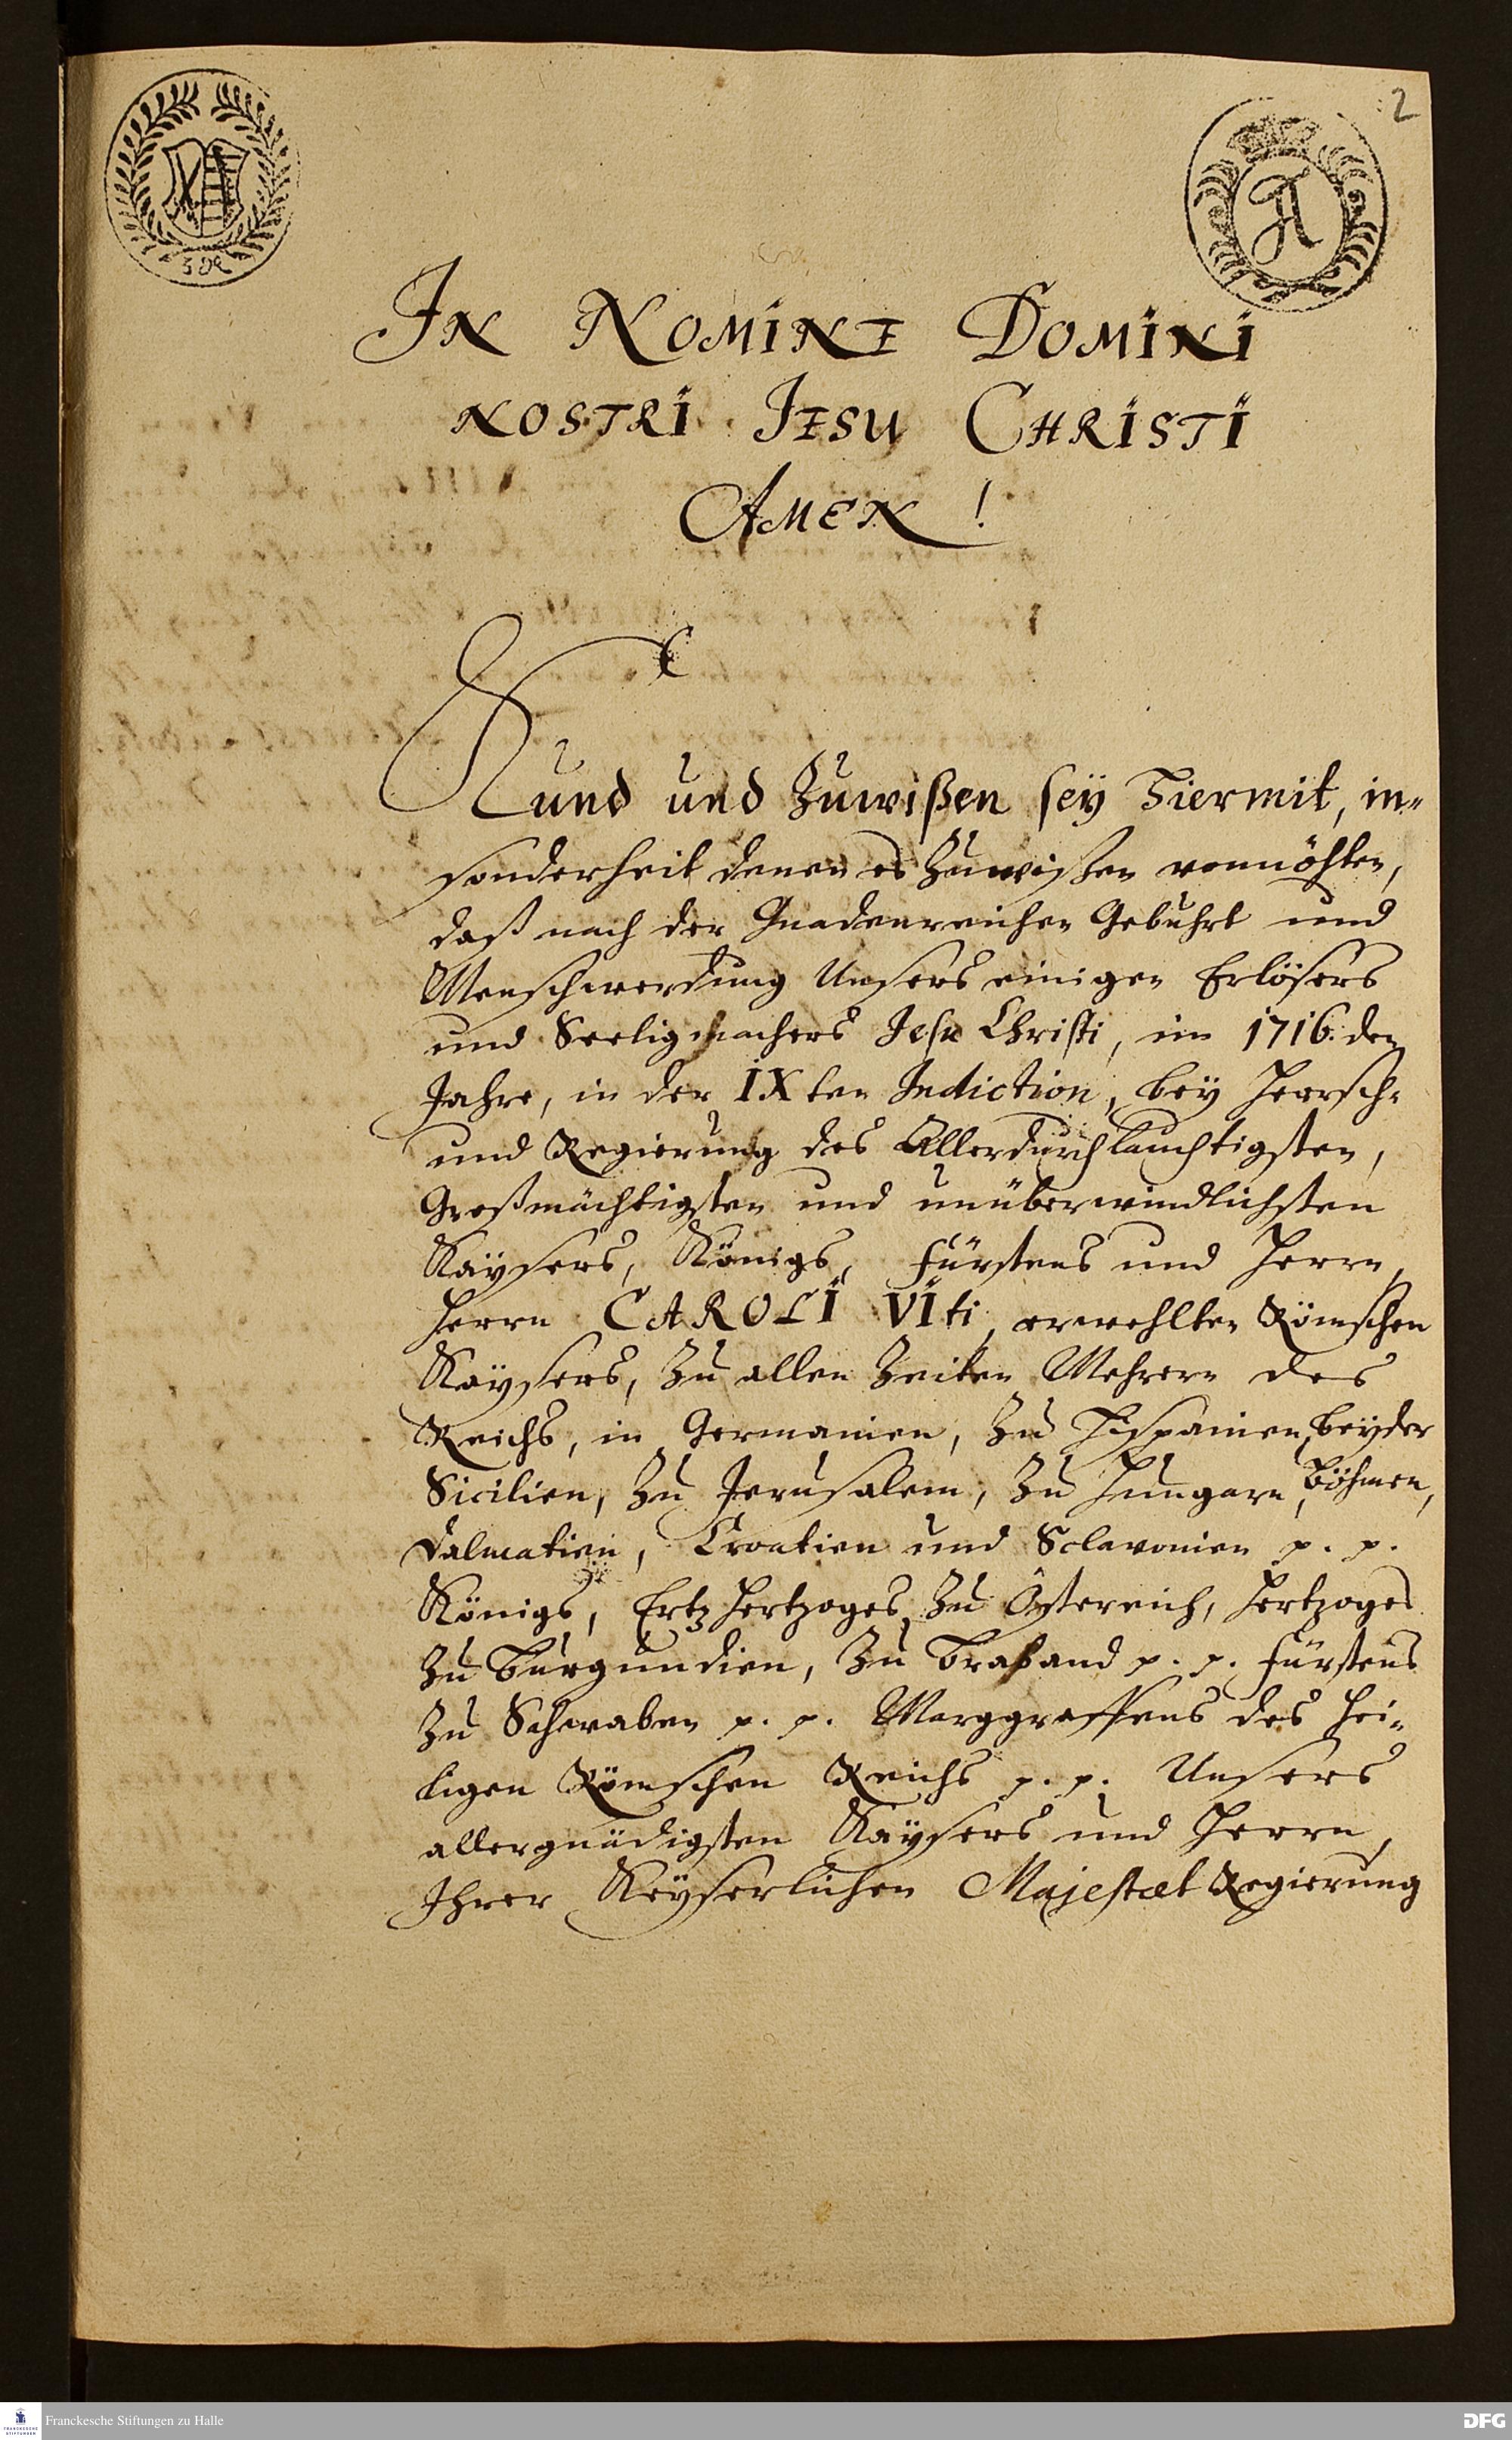 2
IN NOMINE DOMINI
NOSTRI JESU CHRISTI
AMEN !
Kund und Zuwißen seÿ Hiermit, in-
sonderheit denen es Zuwißen vonnöhten,
daß nach der Gnadenreichen Gebuhrt und
Menschwerdung Unsers einigen Erlösers
und Seeligmachers Jesu Christi, im 1716. den
Jahre, in der IXten Indiction, beÿ Herrsch-
und Regierung des Allerdurchlauchtigsten,
Großmächtigsten und unüberwindlichsten
Kaÿsers, Königs, Fürstens und Herrn,
Herrn CAROLI VIti, erwehlten Römschen
Kaÿsers, Zu allen Zeiten Mehrern des
Reichs, in Germanien, Zu Hispanien, beÿder
Sicilien, Zu Jerusalem, Zu Hungarn, Böhmen,
Dalmatien, Croatien und Sclavonien p. p.
Königs, Ertz Hertzoges Zu Östereich, Hertzoges
Zu Burgundien, Zu Braband p. p. Fürstens
Zu Schwaben p. p. Marggraffens des Hei-
ligen Römschen Reichs p. p. Unsers
allergnädigsten Kaÿsers und Herrn,
Ihrer Keÿserlichen Majestæt Regierung
Franckesche Stiftungen zu Halle
DFG